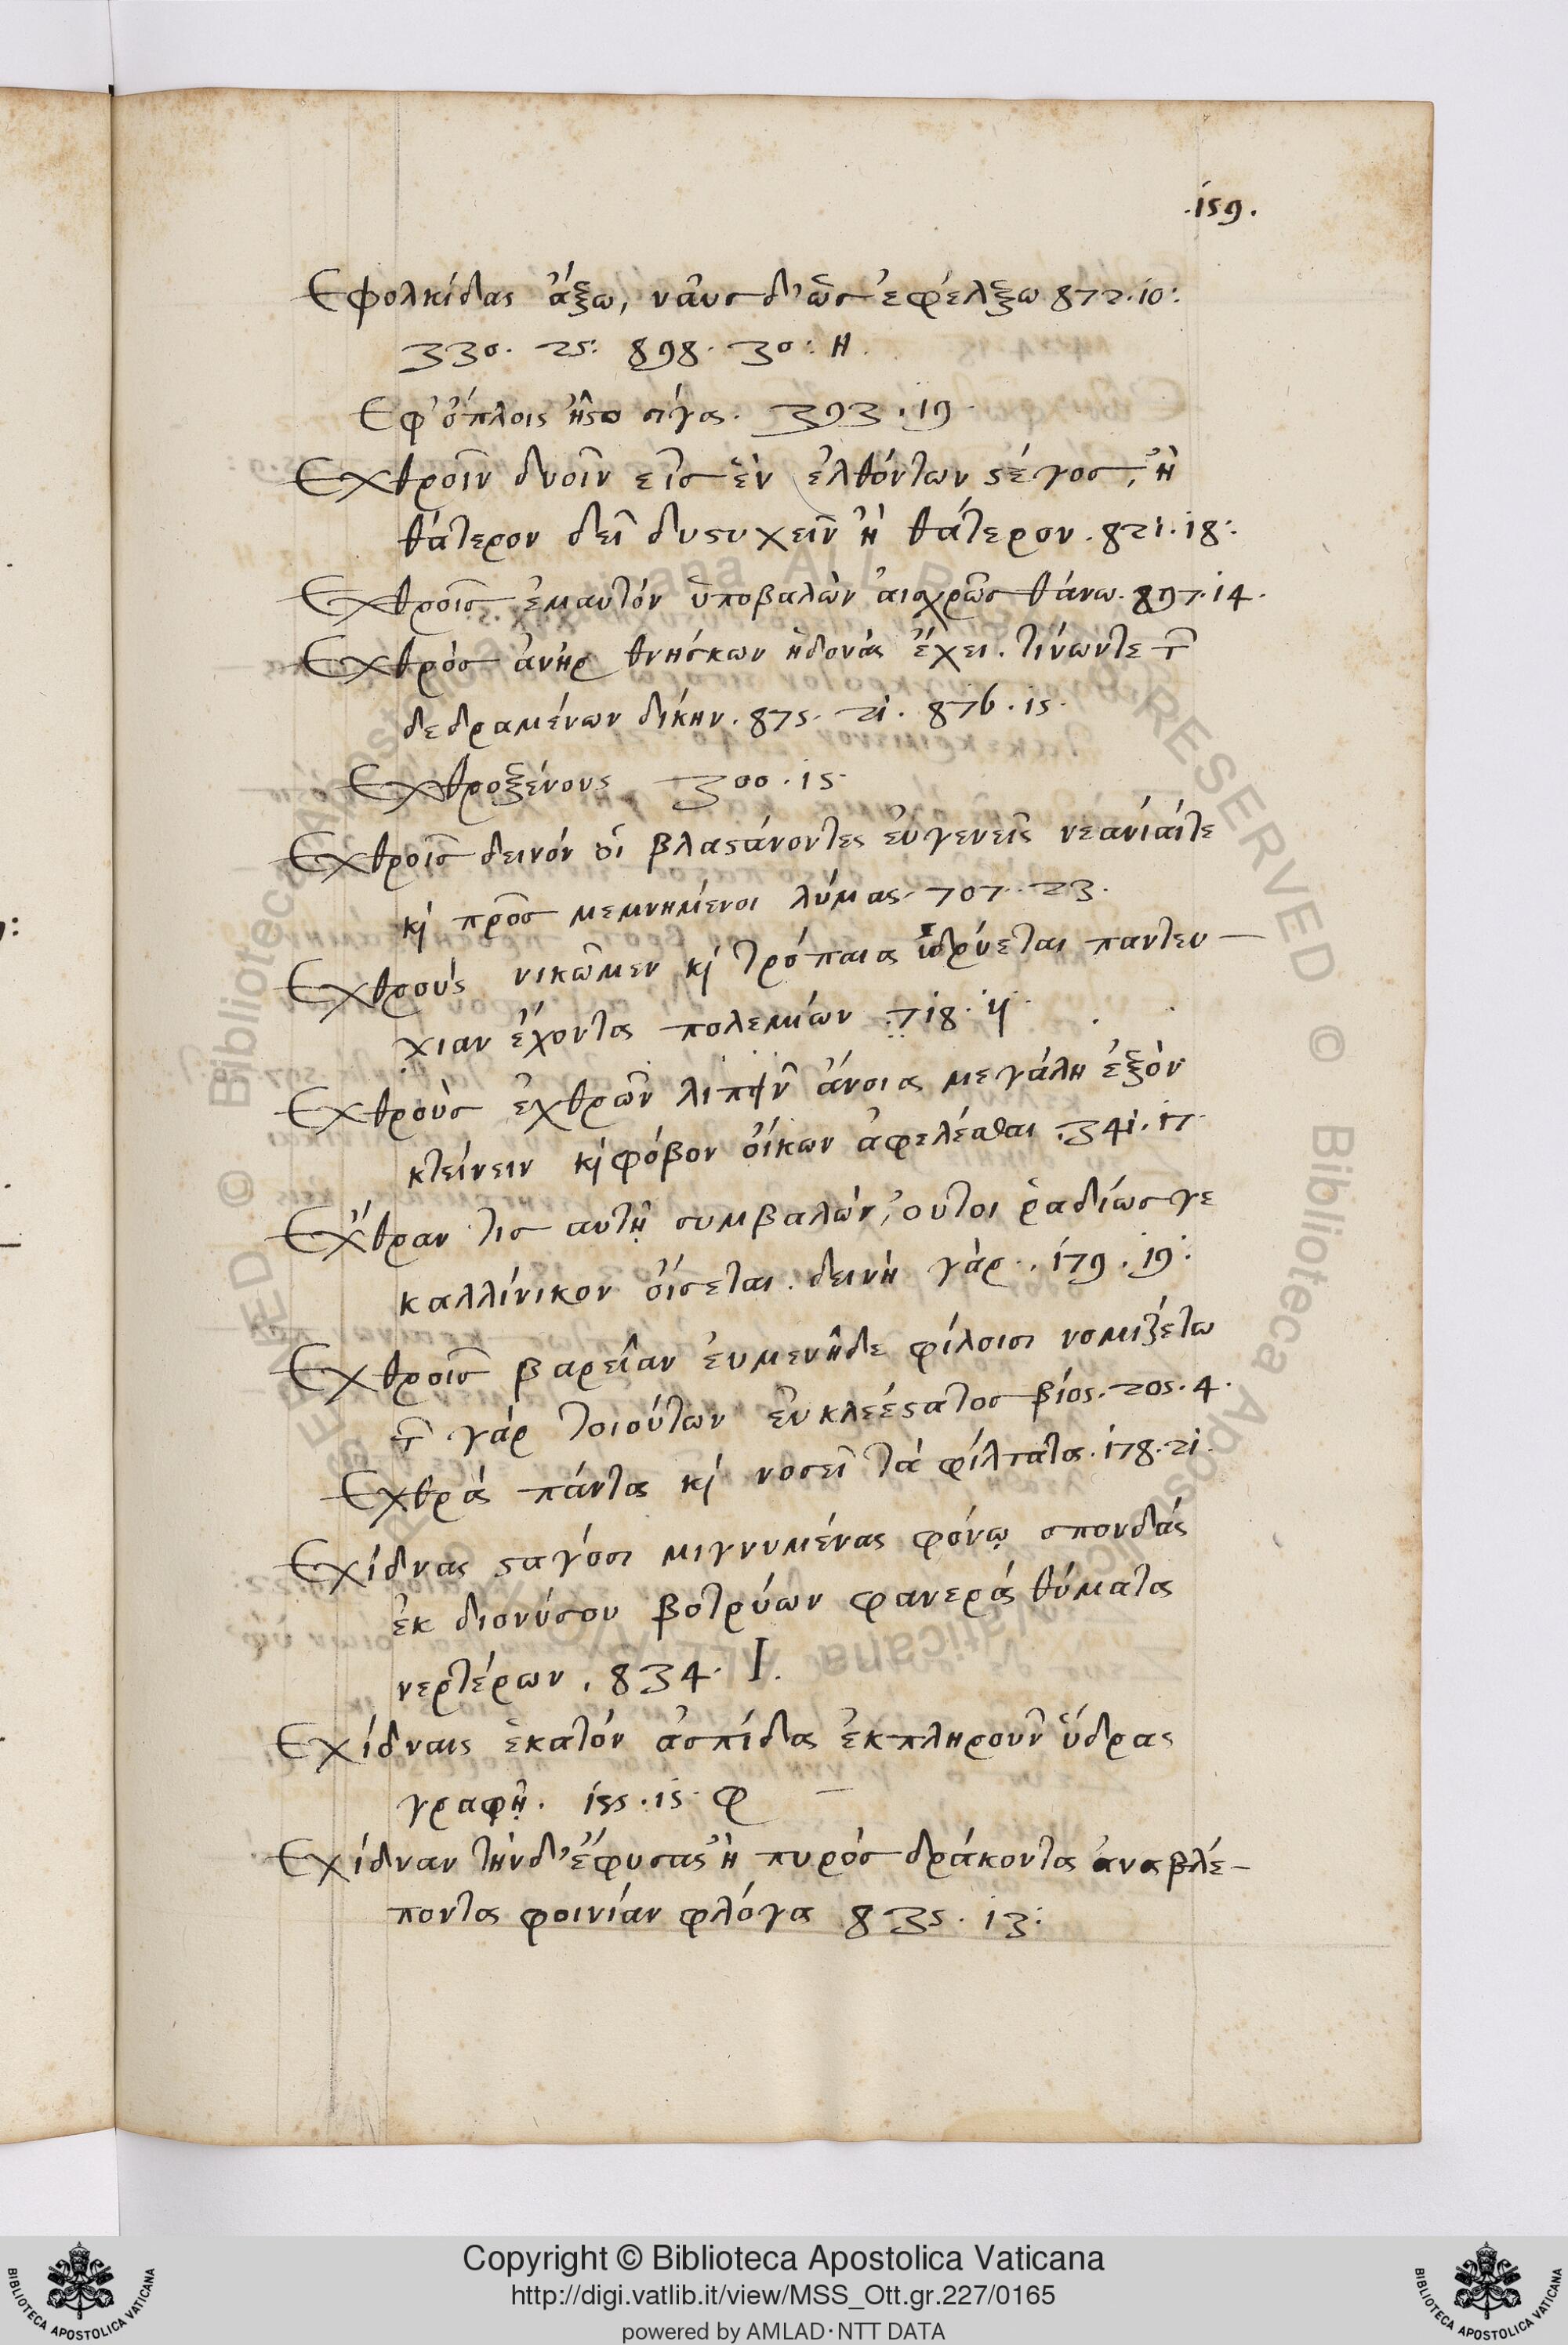 .159.
Εφολκίδας ἄξω, ναῦς δ' ὣς ἐφέλξω 872.10:
330. 25: 898. 30: Η.
Εφ' ὅπλοις ἧϛο σίγα. 393.19
Εχθροῖν δυοῖν εἰς ἓν ἐλθόντων ϛέγος, ἢ
θάτερον δεῖ δυϛυχεῖν ἢ θάτερον. 821.18:
Εχθροῖς ἐμαυτόν ὑποβαλὼν αἰσχρῶς θάνω. 897.14.
Εχθρὸς ἀνὴρ θνήσκων ἡδονὰς ἔχει. τίνωντε τ῀
δεδραμένων δίκην. 875. 21. 876. 15.
Εχθροξένους 300.15.
Εχθροῖς δεινόν οἱ βλαϛάνοντες εὐγενεῖς νεανίαίτε
κ̀ πρὸς μεμνημένοι λύμας. 707. 23.
Εχθροὺς νικῶμεν κ̀ τρόπαια ἱδρύεται παντευ—
χιαν ἔχοντα πολεμίων .718. 11.
Εχθροὺς ἐχθρῶν λιπεῖν ἄνοια μεγάλη ἐξὸν
κτείνειν κ̀ φόβον οἴκων ἀφελέσθαι .341.17.
Εχθραν τις αυτῇ συμβαλὼν, ούτοι ῥαδίως γε
καλλίνικον οἴσεται. δεινὴ γὰρ. 179. 19:
Εχθροῖς βαρεῖαν ἐυμενῆδε φίλοισι νομιζέτω
τ῀ γὰρ τοιούτων ἐυκλεέϛατος βίος. 205.4.
Εχθρὰ πάντα κ̀ νοσεῖ τὰ φίλτατα. 178.21.
Εχίδνας ϛαγόσι μιγνυμένας φόνῳ σπονδὰς
ἐκ διονύσου βοτρύων φανερὰ θύματα
νερτέρων. 834. I.
Εχίδναις ἑκατόν ἀσπίδα ἐκπληροῦν ὕδρας
γραφῇ. 155.15. φ —
Εχίδναν τήνδ' ἔφυσας ἢ πυρὸς δράκοντα ἀναβλέ—
ποντα φοινίαν φλόγα 835. 13:
Copyright © Biblioteca Apostolica Vaticana
http://digi.vatlib.it/view/MSS_Ott.gr.227/0165
powered by AMLAD·NTT DATA